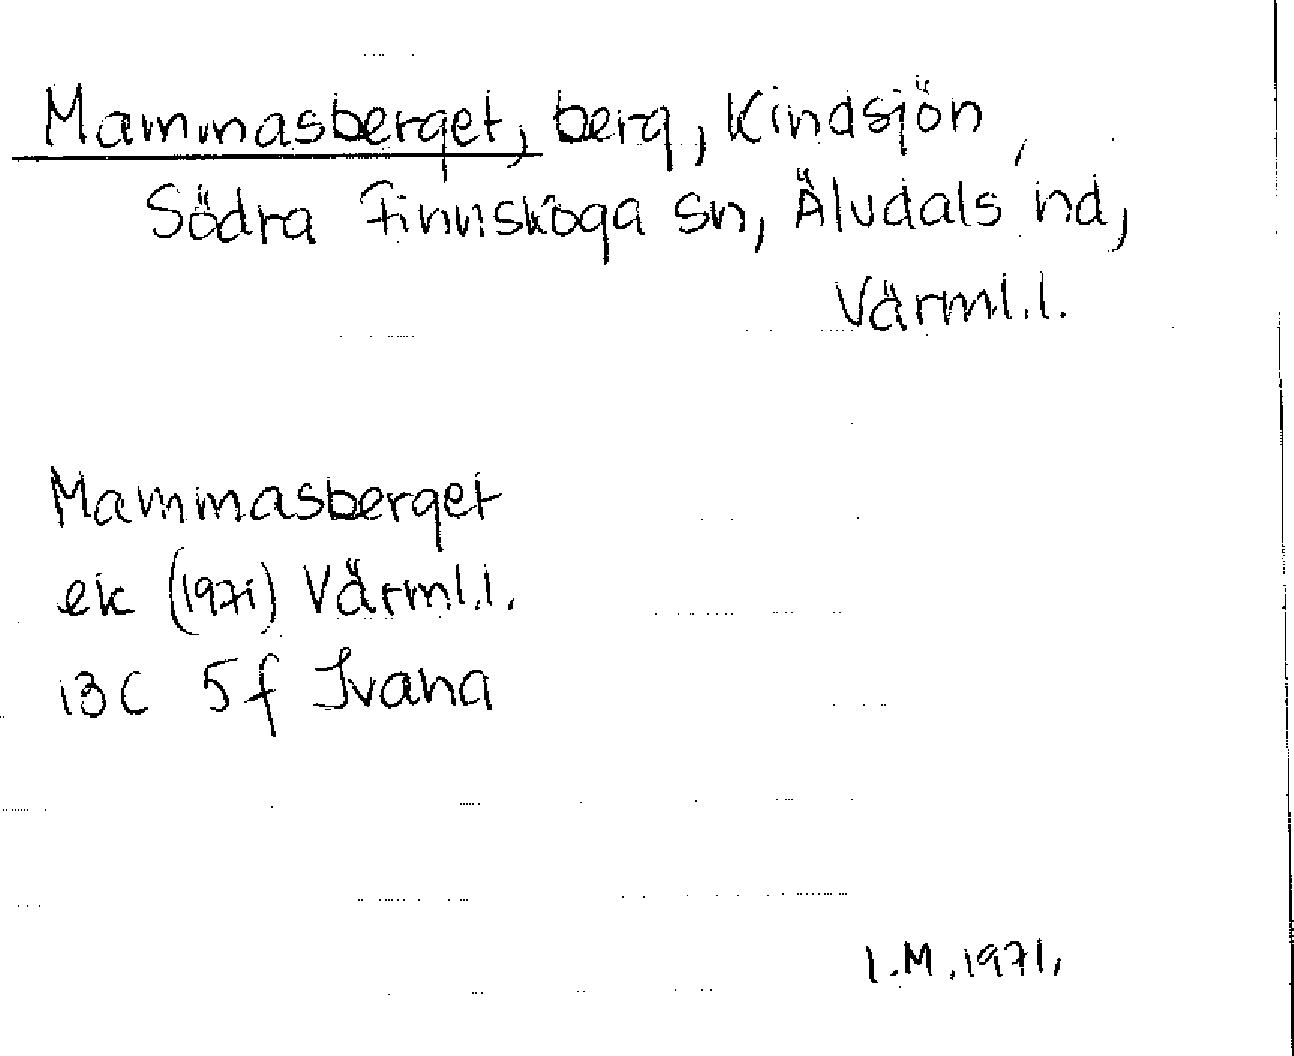 Mammasberget, berg, Kindsjön,
Södra Finnskoga sn, Älvdals hd,
Värml.l.
Mammasberget
ek (1971) Värml.l.
13C 5f Ivana
I.M.1971.